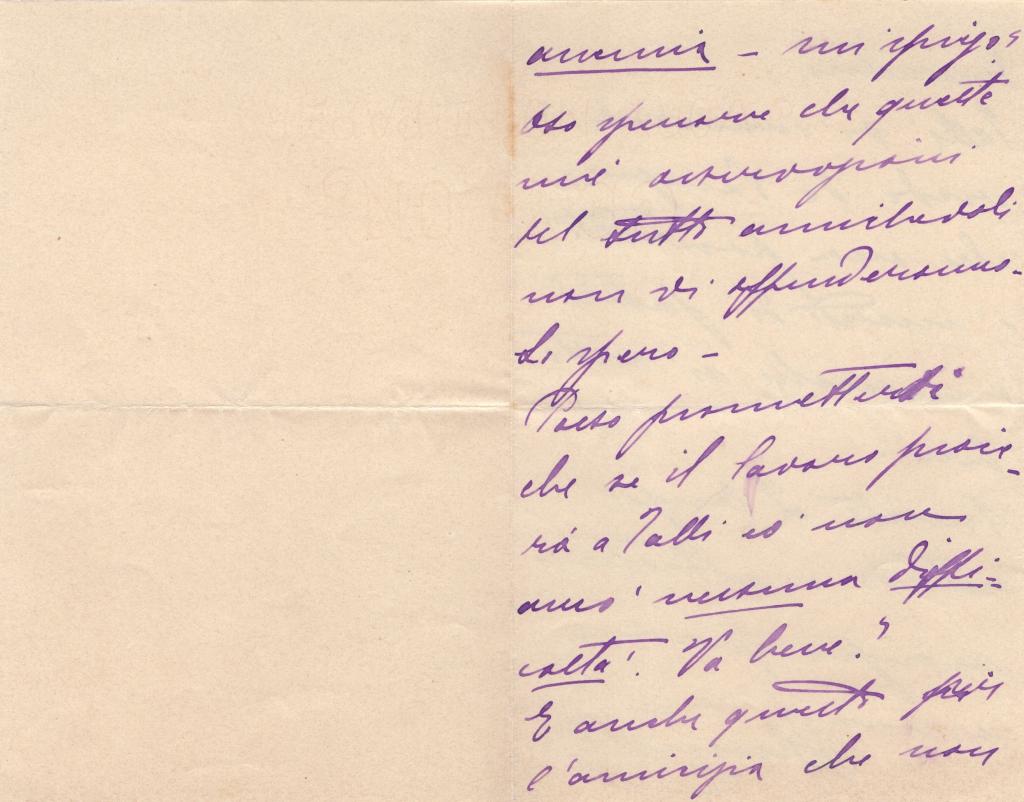 anemia - mi spiego?
Oso sperare che queste
mie osservazioni
del tutto amichevoli
non vi offenderanno.
Lo spero -
Posso promettervi
che se il lavoro piace-
rà a Talli io non
avrò nessuna diffi-
coltà. Va bene?
E anche questo per
l'amicizia che non